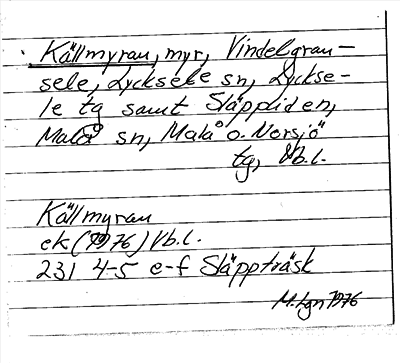 Källmyran, myr, Vindelgran-
sele, Lycksele sn, Lyckse-
le tg samt Släppliden,
Malå sn, Malå o. Norsjö
tg, Vb.l.
Källmyran
ek (1976) Vb.l.
231 4-5 e-f Släppträsk
M.Lgn 1976